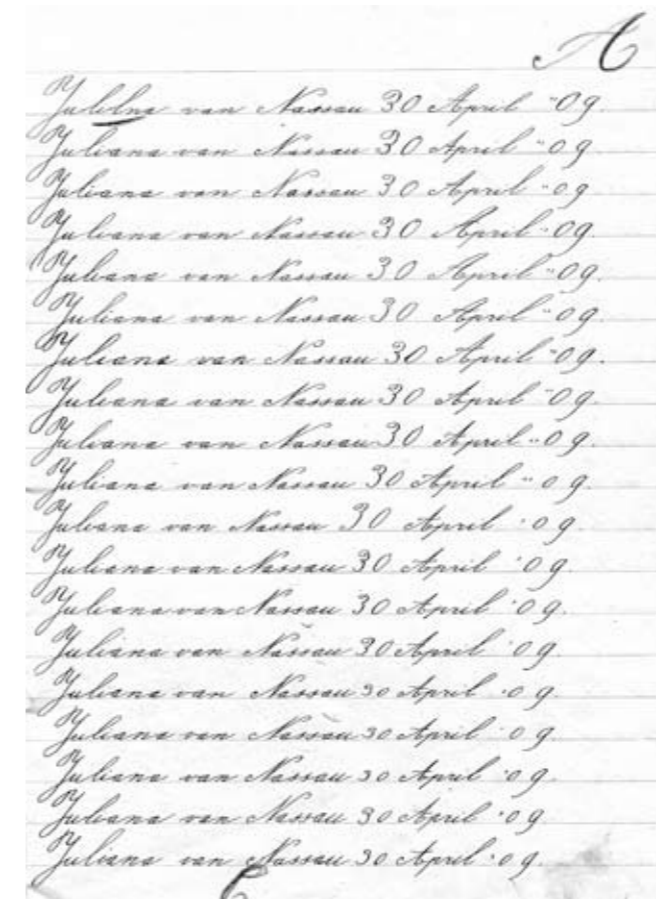 A
Julelna van Nassau 30 April "09.
Juliana van Nassau 30 April "09.
Juliana van Nassau 30 April "09
Juliana van Nassau 30 April "09.
Juliana van Nassau 30 April "09.
Juliana van Nassau 30 April "09.
Juliana van Nassau 30 April "09.
Juliana van Nassau 30 April "09.
Juliana van Nassau 30 April "09.
Juliana van Nassau 30 April "09.
Juliana van Nassau 30 April '09.
Juliana van Nassau 30 April '09.
Juliana van Nassau 30 April '09.
Juliana van Nassau 30 April '09.
Juliana van Nassau 30 April '09.
Juliana van Nassau 30 April '09.
Juliana van Nassau 30 April '09.
Juliana van Nassau 30 April '09.
Juliana van Nassau 30 April '09.